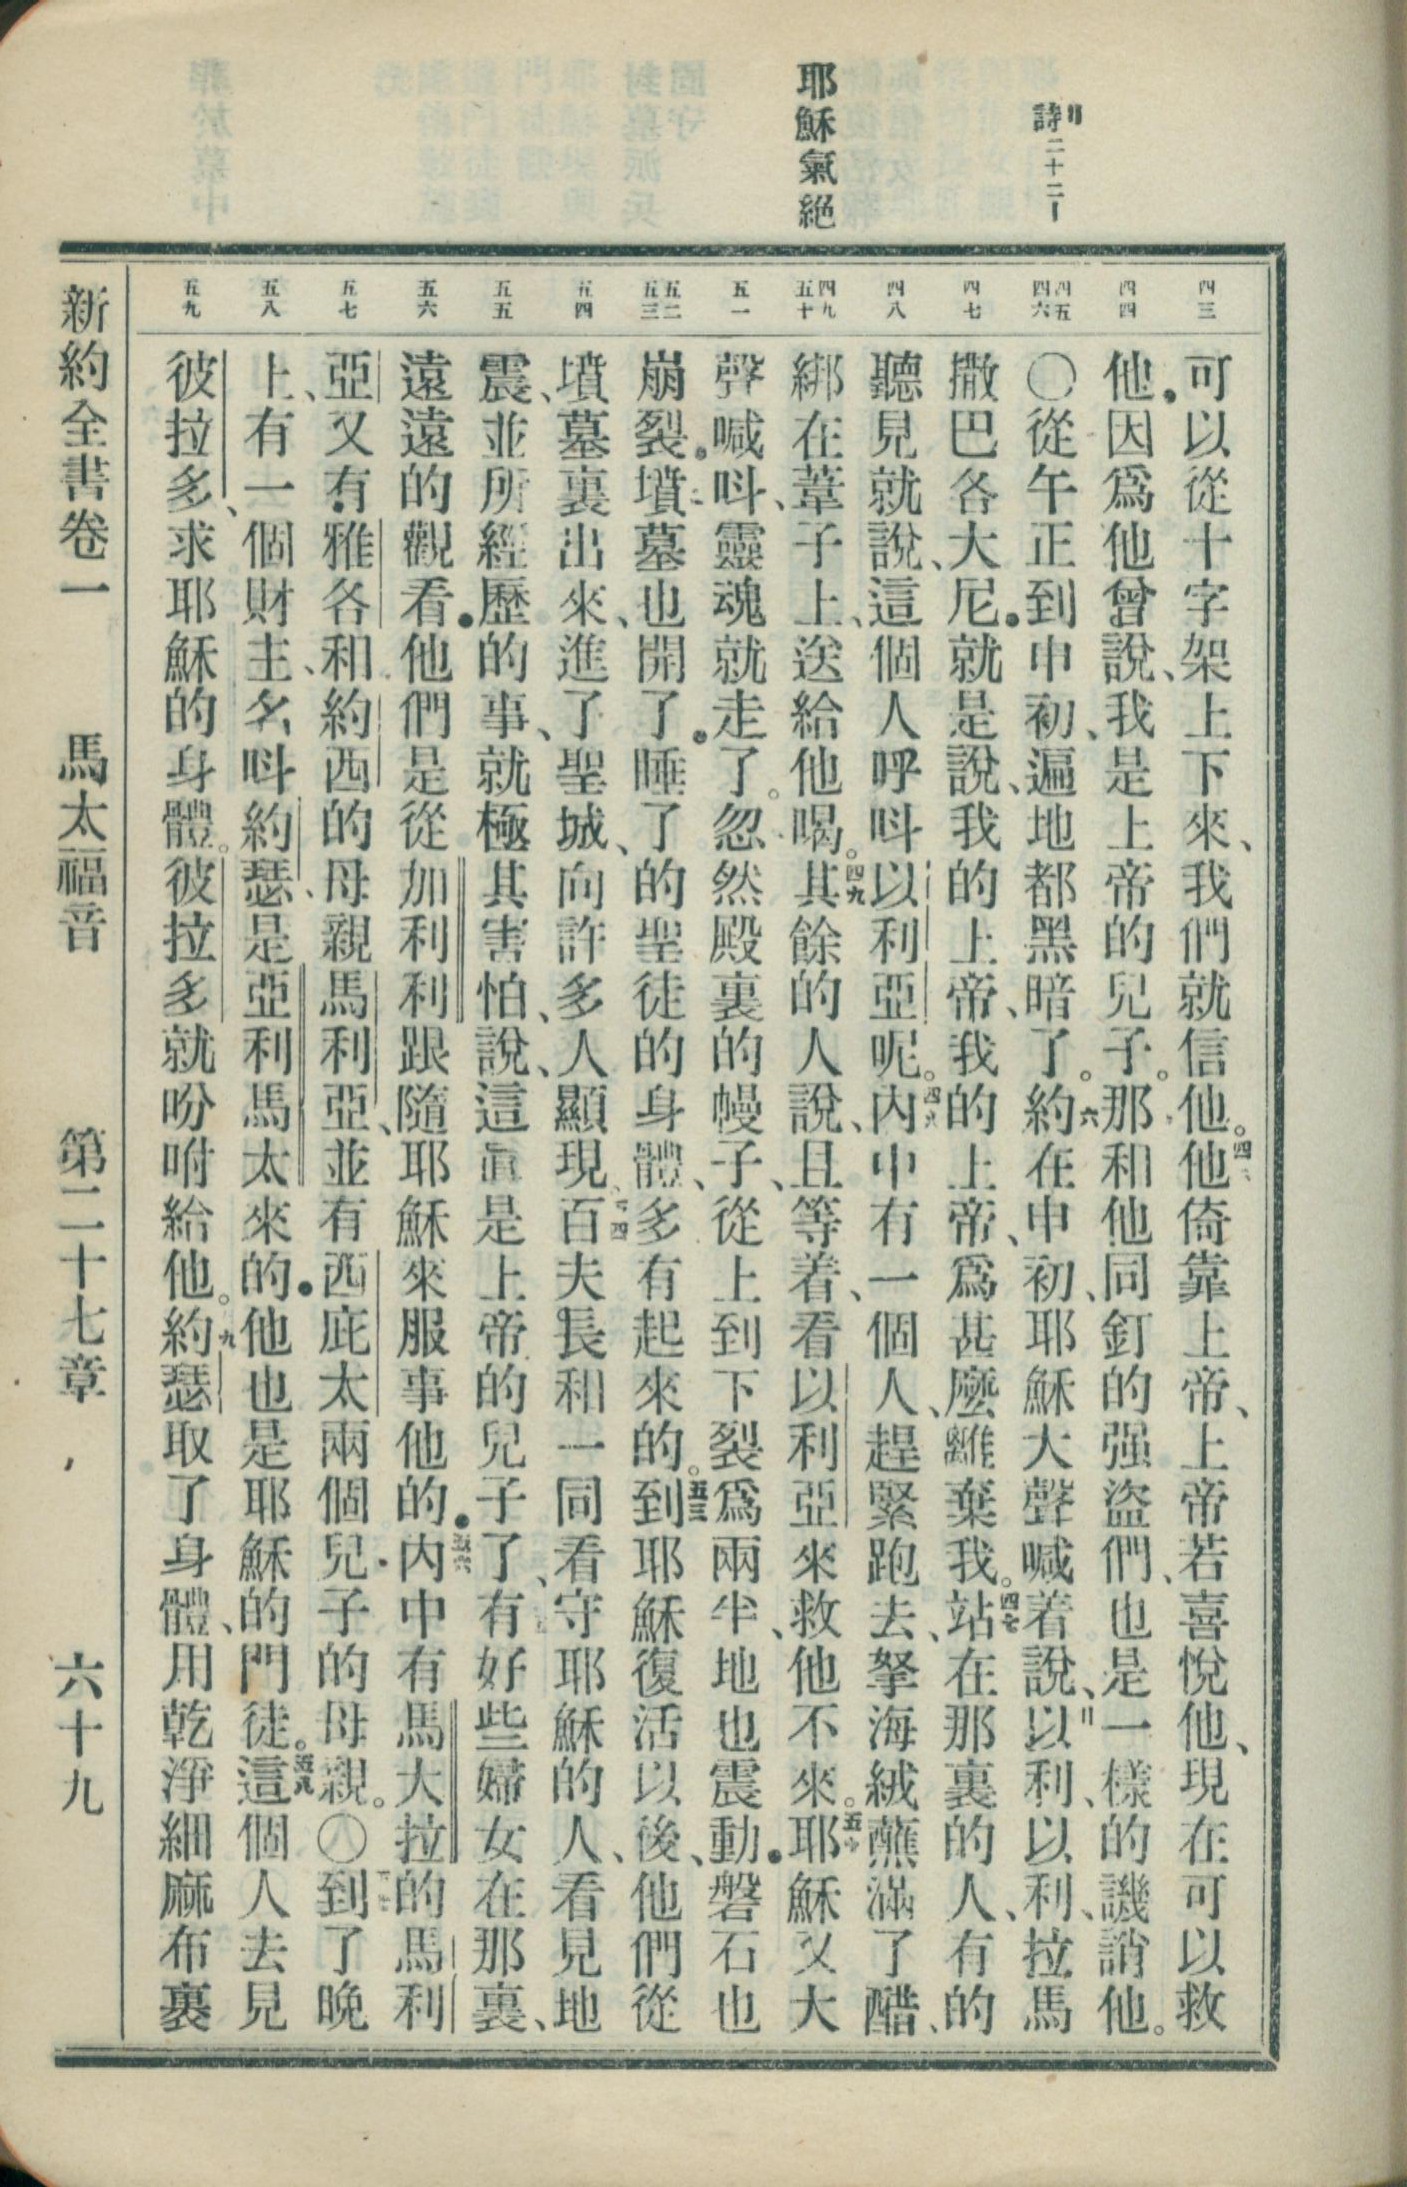 詩二十二1
耶穌氣絕
四三
四四
四五 四六
四七
四八
四九 五十
五一
五二 五三
五四
五五
五六
五七
五八
五九
可以從十字架上下來、我們就信他。他倚靠上帝、上帝若喜悅他、現在可以救
他．因爲他曾說、我是上帝的兒子。那和他同釘的强盜們、也是一樣的譏誚他。
〇從午正到申初、遍地都黑暗了。約在申初、耶穌大聲喊着說、以利、以利、拉馬
撒巴各大尼．就是說、我的上帝、我的上帝、爲甚麼離棄我。站在那裏的人、有的
聽見就說、這個人呼呌以利亞呢。內中有一個人、趕緊跑去、拏海絨蘸滿了醋、
綁在葦子上、送給他喝。其餘的人說、且等着、看以利亞來救他不來。耶穌又大
聲喊呌、靈魂就走了。忽然殿裏的幔子、從上到下裂爲兩半、地也震動．磐石也
崩裂．墳墓也開了．睡了的聖徒的身體、多有起來的。到耶穌復活以後、他們從
墳墓裏出來、進了聖城、向許多人顯現、百夫長和一同看守耶穌的人、看見地
震、並所經歷的事、就極其害怕、說、這眞是上帝的兒子了、有好些婦女在那裏、
遠遠的觀看．他們是從加利利跟隨耶穌來服事他的．內中有馬大拉的馬利
亞、又有雅各和約西的母親馬利亞、並有西庇太兩個兒子的母親。〇到了晚
上、有一個財主、名呌約瑟、是亞利馬太來的．他也是耶穌的門徒。這個人去見
彼拉多、求耶穌的身體。彼拉多就吩咐給他。約瑟取了身體、用乾淨細麻布裹
新約全書卷一 馬太福音 第二十七章 六十九